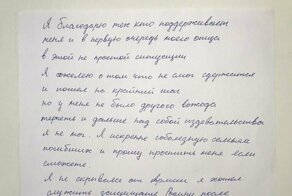 Я благодарю тех кто поддерживает
меня и в первую очередь моего отца
в этой не простой ситуации
Я сожалею о том что не смог сдержаться
и пошел на крайний шаг
но у меня не было другого выхода
терпеть и дальше над собой издевательства
Я не мог. Я искренне соболезную семьям
погибших и прошу простить меня если
сможете.
Я не скрывался от армии я хотел
служить защищать Родину после